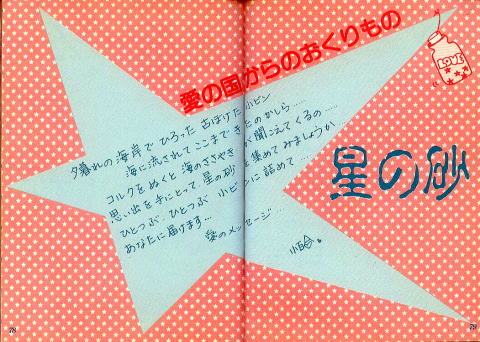 愛の国からのおくりもの
LOVE
星の砂
夕暮れの海岸で ひろった 古ぼけた小ビン
海に流されて ここまできたのかしら……
コルクをぬくと 海のささやきが聞こえてくるの……
思い出を手にとって 星の砂を集めてみましょうか
ひとつぶ、ひとつぶ 小ビンに詰めて……
あなたに届けます…
愛のメッセージ…
78
79